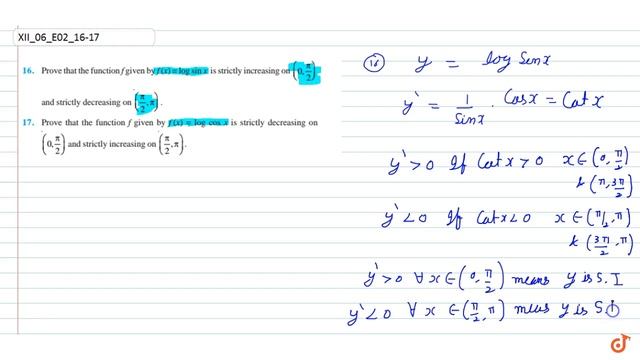 XII_06_E02_16-17
16. Prove that the function f given by f(x) = log sin x is strictly increasing on (0, π/2)
and strictly decreasing on (π/2, π).
17. Prove that the function f given by f(x) = log cos x is strictly decreasing on
(0, π/2) and strictly increasing on (π/2, π).
16 y = log Sinx
y' = 1/Sinx . Cosx = Cot x
y' > 0 If Cotx > 0 x ∈ (0, π/2)
& (π, 3π/2)
y' < 0 If Cotx < 0 x ∈ (π/2, π)
& (3π/2, π)
y' > 0 ∀ x ∈ (0, π/2) means y is S. I
y' < 0 ∀ x ∈ (π/2, π) meus y is S.